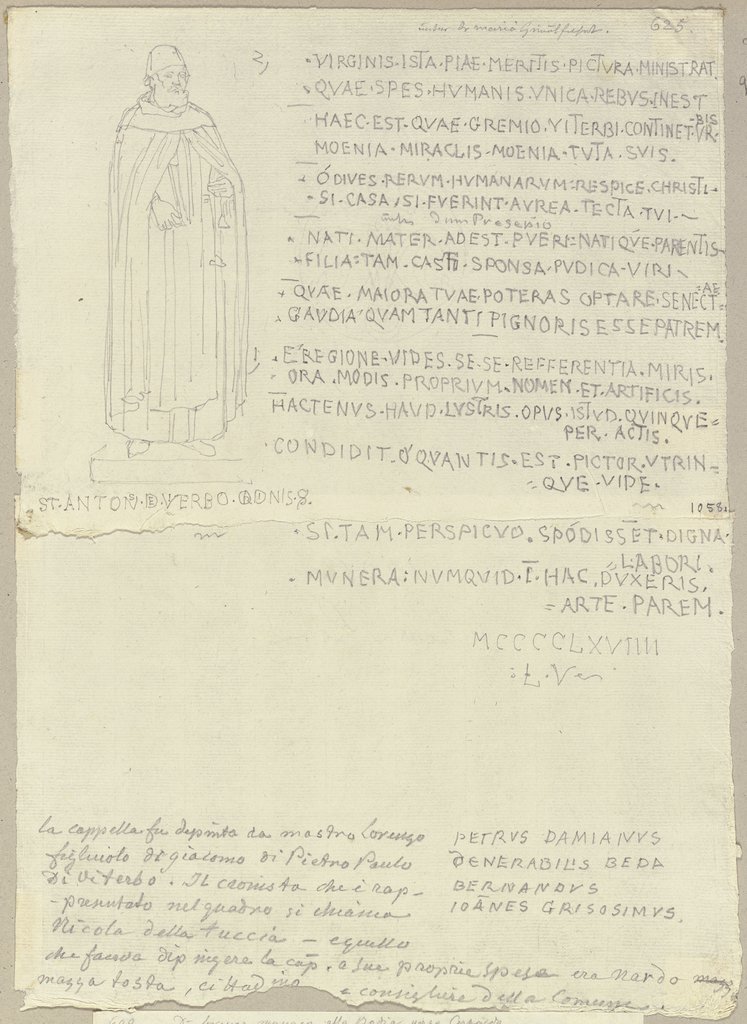 625.
2,
• VIRGINIS • ISTA • PIAE • MERITIS • PICTVRA • MINISTRAT
• QVAE • SPES • HVMANIS • VNICA • REBVS • INEST
HAEC • EST • QVAE • GREMIO • VITERBI • CONTINET • VR-BIS
MOENIA • MIRACLIS • MOENIA • TVTA • SVIS.
• Ó DIVES • RERVM • HVMANARVM = RESPICE • CHRISTI •
• SI • CASA / SI • FVERINT • AVREA • TECTA • TVI —
Presepio
• NATI • MATER • ADEST • PVERI = NATI QVE • PARENTIS
• FILIA = TAM • CASTI • SPONSA • PVDICA • VIRI
• QVAE • MAIORA TVAE POTERAS OPTARE • SENECT-AE
GAVDIA QVAM TANTI PIGNORIS ESSE PATREM
1, E REGIONE • VIDES • SE • SE • REFFERENTIA • MIRIS •
ORA • MODIS • PROPRIVM • NOMEN • ET • ARTIFICIS.
HACTENVS • HAVD • LVSTRIS • OPVS • ISTVD • QVINQVE =
PER • ACTIS.
• CONDIDIT • Ó QVANTIS • EST • PICTOR • VTRIN =
= QVE • VIDE •
ST. ANTON. D. VERBO.
1058.
• SI. TAM • PERSPICVO. SPÓDISSET • DIGNA
= LABORI.
• MVNERA: NVMQVID • I • HAC, DVXERIS,
= ARTE • PAREM.
MCCCCLXVIIII
la cappella fu dipinta da mastro Lorenzo
figliuolo di giacomo di Pietro Paulo
Di Viterbo. Il cronista che è rap-
-presentato nel quadro si chiama
Nicola della tuccia — equello
che faceva dipingere la cap. a sue proprie spese era Nardo
mazza tosta, cittadino e consigliere della Comune.
PETRVS DAMIANVS
VENERABILIS BEDA
BERNANDVS
IOANES GRISOSIMVS.